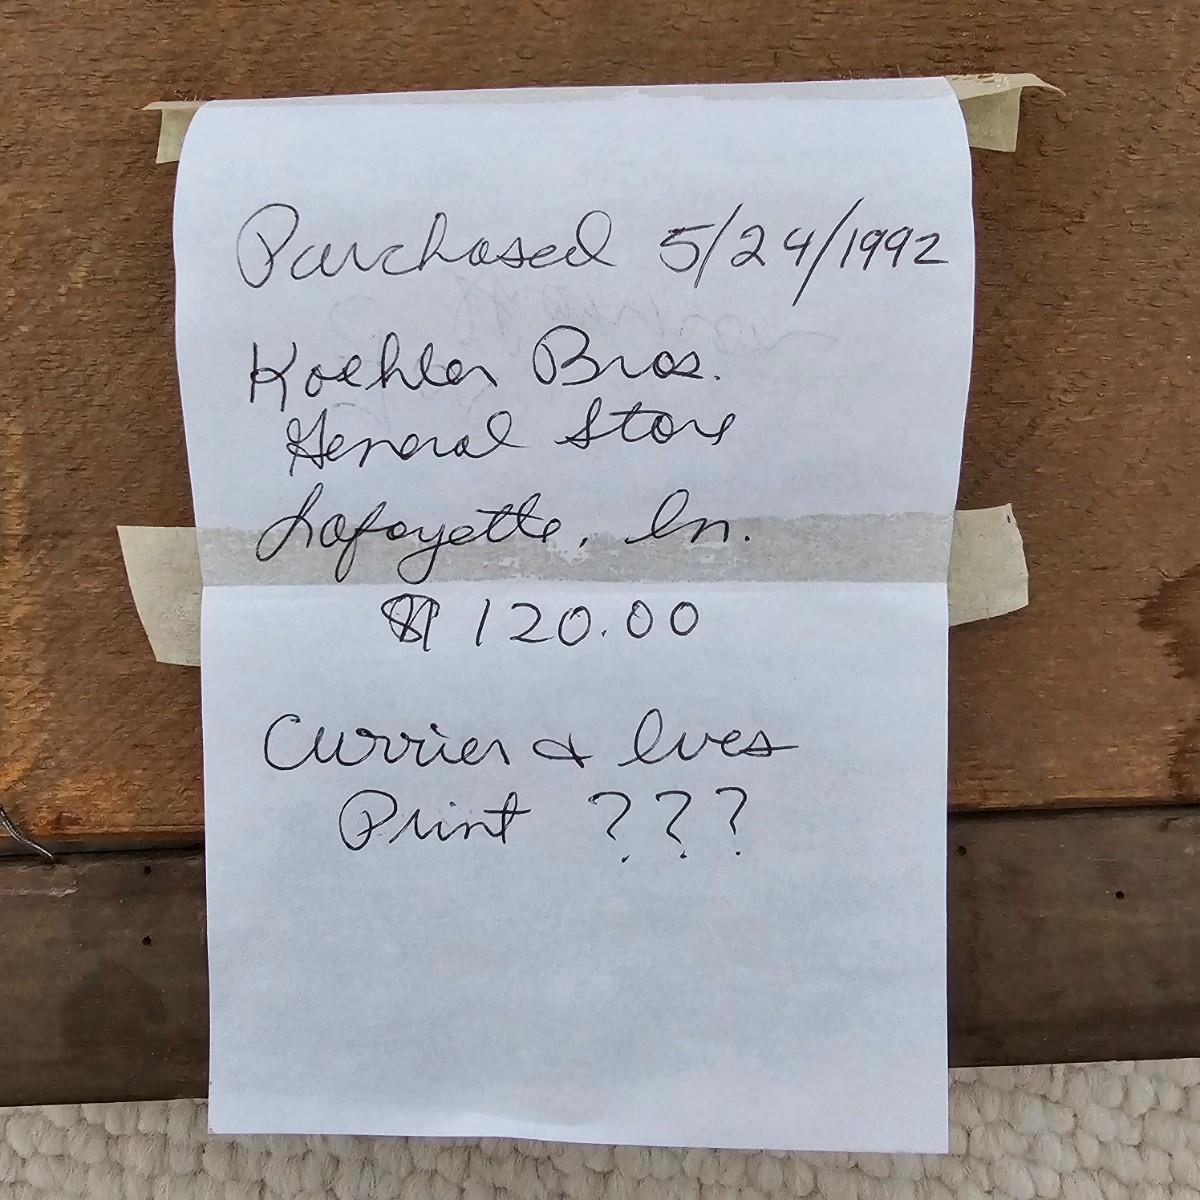 Purchased 5/24/1992
Koehler Bros.
General Store
Lafayette, In.
$120.00
Currier & Ives
Print ???